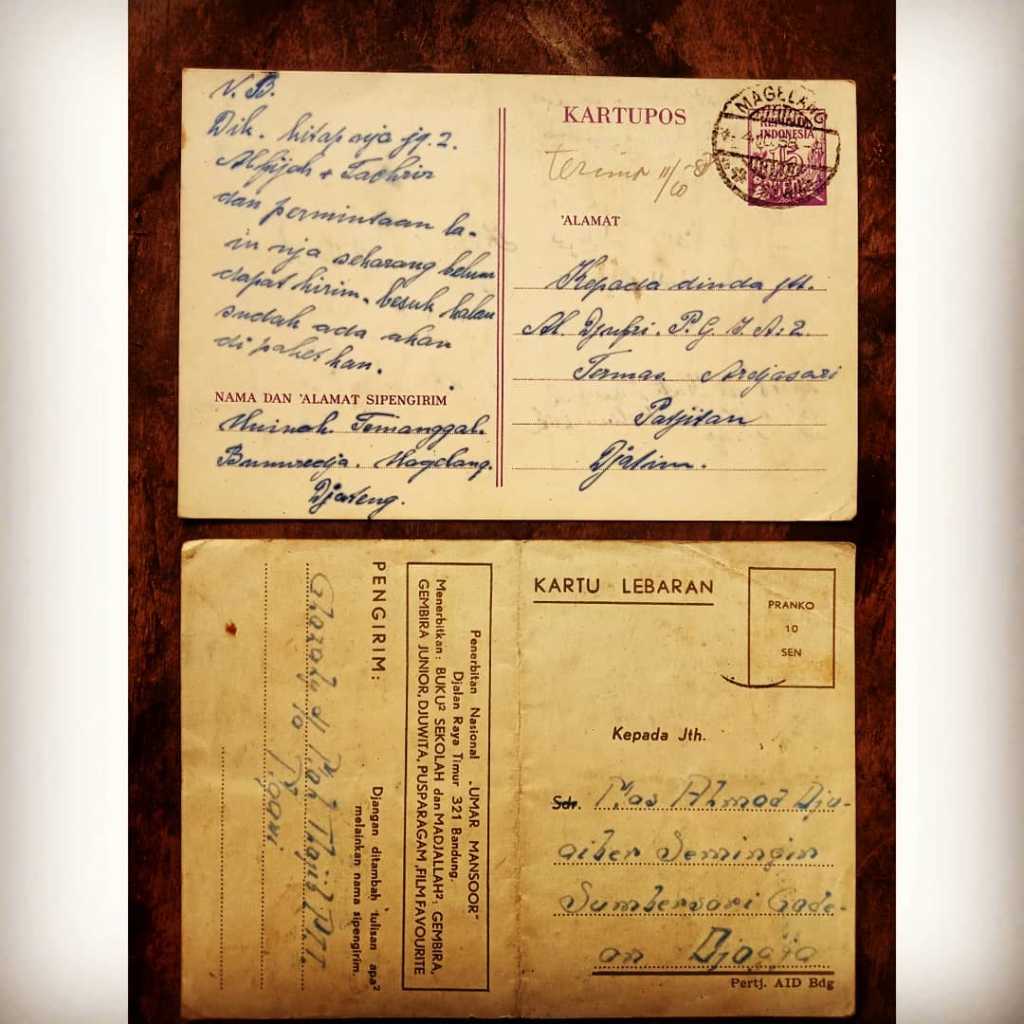 N.B.
Dik. kitapnja jg. 2.
dan permintaan la-
in nja sekarang belum
dapat kirim. besuk kalau
sudah ada akan
di paketkan.
NAMA DAN 'ALAMAT SIPENGIRIM
Muinah. Temanggal.
Magelang.
Djateng.
KARTUPOS
MAGELANG
REPUBLIK
INDONESIA
15
SEN
terima 11/10
'ALAMAT
Kepada dinda jtt.
Al. Djufri. P.G.A. 2.
Termas. Ardjasari
Patjitan
Djatim.
PENGIRIM:
Djangan ditambah tulisan apa²
melainkan nama sipengirim.
Penerbitan Nasional „UMAR MANSOOR"
Djalan Raya Timur 321 Bandung.
Menerbitkan: BUKU² SEKOLAH dan MADJALLAH², GEMBIRA,
GEMBIRA JUNIOR, DJUWITA, PUSPARAGAM, FILM FAVOURITE
KARTU LEBARAN
PRANKO
10
SEN
Kepada Jth.
Sdr. Mas Ahmad Dju-
aiber Semingin
Sumbersari Gode-
an Djogja
Pertj. AID Bdg